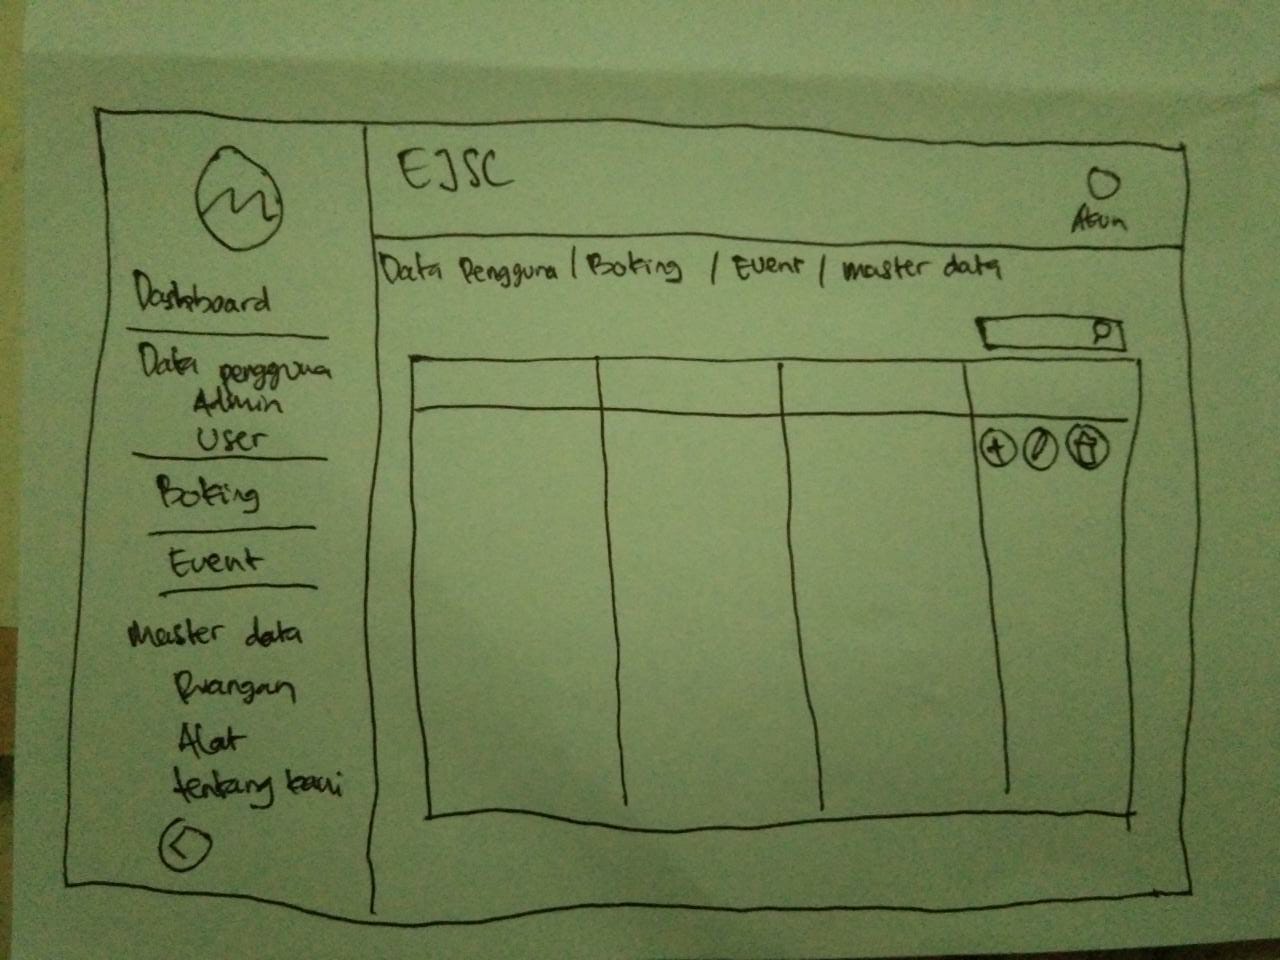 EJSC
Akun
Dashboard
Data pengguna
Admin
User
Boking
Event
Master data
Ruangan
Alat
tentang kami
Data Pengguna / Boking / Event / master data